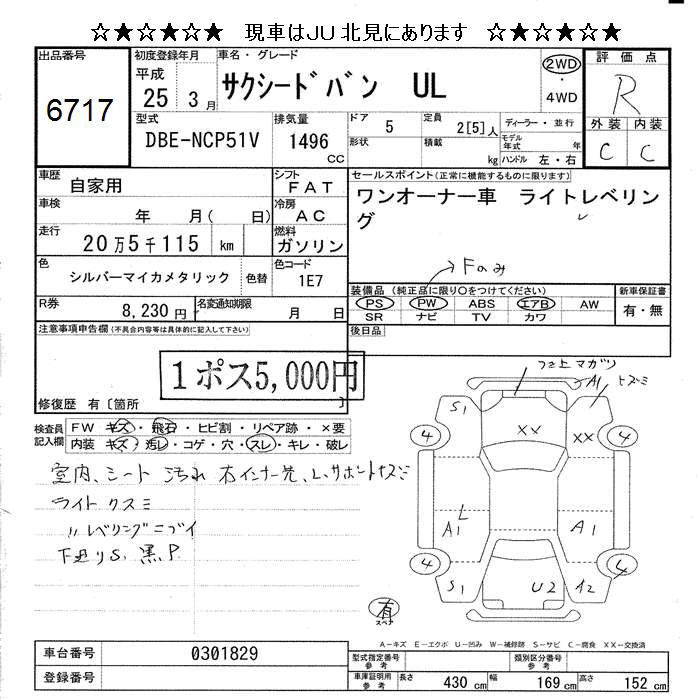 ☆★☆★☆★☆ 現車はJU北見にあります ☆★☆★☆★☆
出品番号
6717
初度登録年月
平成
25 3月
車名・グレード
サクシードバン UL
2WD
・
4WD
評価点
R
外装 内装
C C
型式
DBE-NCP51V
排気量
1496
CC
ドア 5
形状
定員 2[5]人
積載 kg
ディーラー・並行
モデル年式 年
ハンドル 左・右
車歴 自家用
シフト FAT
車検 年 月( 日)
冷房 AC
走行 20万5千115 km
燃料 ガソリン
色 シルバーマイカメタリック 色替
色コード 1E7
R券 8,230円
名変通知期限 月 日
セールスポイント(正常に機能するものに限ります)
ワンオーナー車 ライトレベリン
グ
→Fのみ
装備品(純正品に限り○をつけてください)
PS PW ABS エアB AW
SR ナビ TV カワ
新車保証書
有・無
後日品
注意事項申告欄(不具合内容等は具体的に記入して下さい)
1ポス5,000円
修復歴 有〔箇所 〕
検査員記入欄
FW キズ・飛石・ヒビ割・リペア跡・×要
内装 キズ・汚レ・コゲ・穴・スレ・キレ・破レ
室内、シート 汚れ
ライト クスミ
〃レベリングニブイ
下廻りS. 黒P
マガリ
A1
S1
XX
XX
4
4
L
A1
A1
4
4
S1
U2
A2
有
スペア
A-キズ E-エクボ U-凹み W-補修跡 S-サビ C-腐食 XX-交換済
車台番号 0301829
登録番号
型式指定番号 参考
類別区分番号 参考
車庫証明用 参考
長さ 430 cm 幅 169 cm 高さ 152 cm